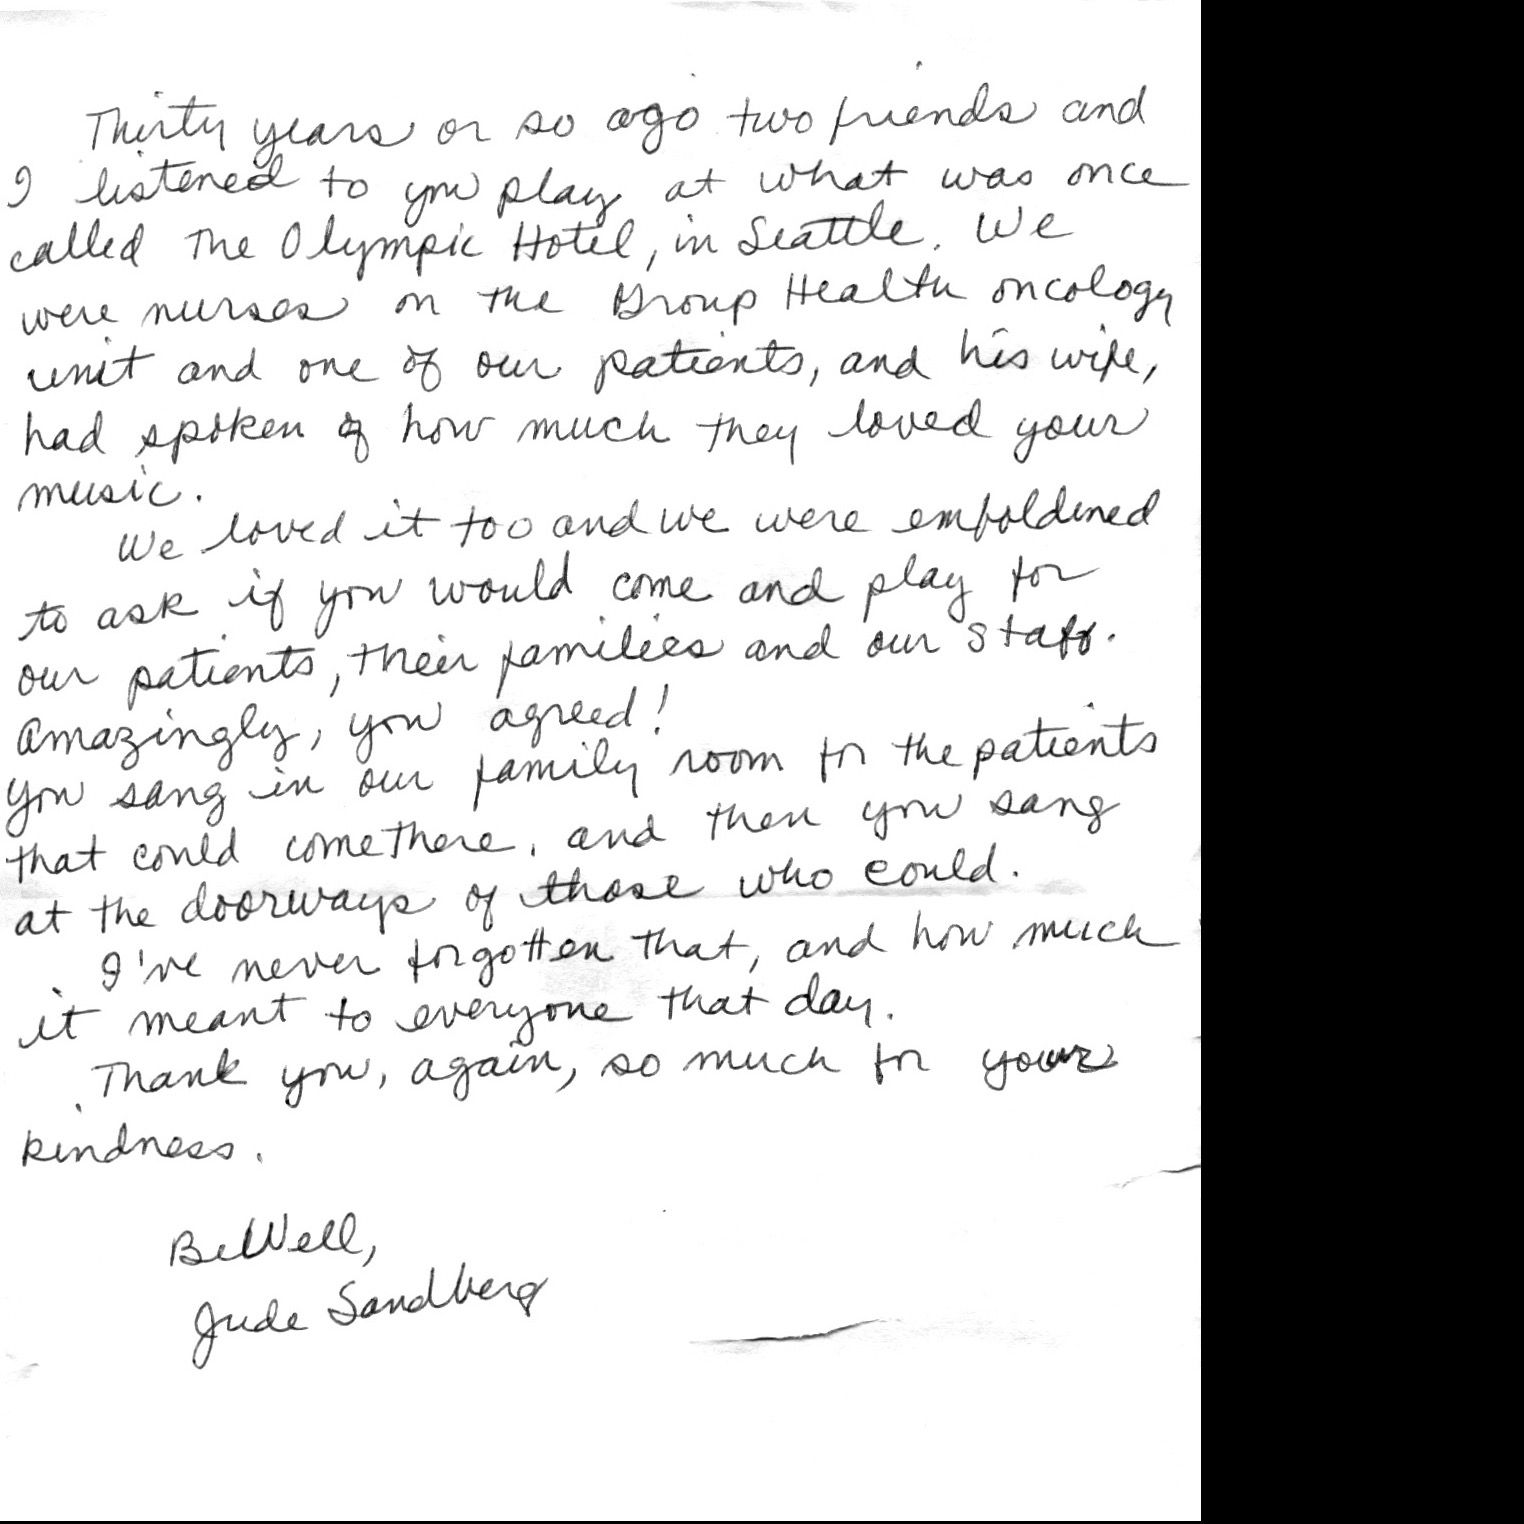 Thirty years or so ago two friends and
I listened to you play at what was once
called The Olympic Hotel, in Seattle. We
were nurses on the Group Health oncology
unit and one of our patients, and his wife,
had spoken of how much they loved your
music.
We loved it too and we were emboldened
to ask if you would come and play for
our patients, their families and our staff.
Amazingly, you agreed!
You sang in our family room for the patients
that could come there, and then you sang
at the doorways of those who could.
I've never forgotten that, and how much
it meant to everyone that day.
Thank you, again, so much for your
kindness.
Be Well,
Jude Sandberg